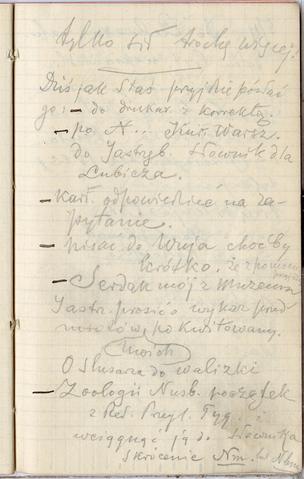 tylko sił trochę więcej.
Dziś jak Staś przyjdzie posłać
go: – do drukar. z korektą.
– po N... Kur. Warsz.
do Jastrzęb. Słownik dla
Lubicza.
– Karł. odpowiedzieć na za-
pytanie.
– pisać do Wuja choćby
krótko.
– Serdak mój z muzeum
Jastr. prosić o wykaz przed
miotów, pokwitowany.
moich
O Ślusarza do walizki
– Zoologii Nusb. początek
z Red. Przyl. Tyg.
wciągnąć do Słownika
skrócenie Nm.